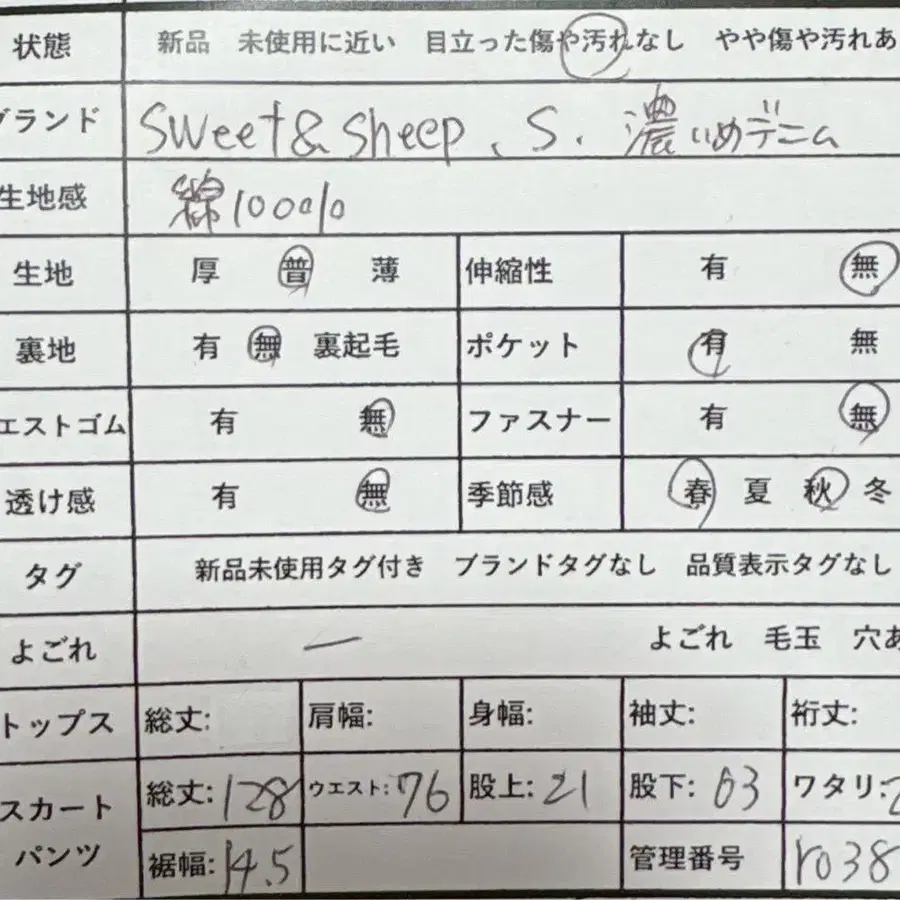 状態 新品 未使用に近い 目立った傷や汚れなし やや傷や汚れあ
ブランド sweet & sheep 、S. 濃いめデニム
生地感 綿100%
生地 厚 普 薄 伸縮性 有 無
裏地 有 無 裏起毛 ポケット 有 無
エストゴム 有 無 ファスナー 有 無
透け感 有 無 季節感 春 夏 秋 冬
タグ 新品未使用タグ付き ブランドタグなし 品質表示タグなし
よごれ ー よごれ 毛玉 穴あ
トップス 総丈: 肩幅: 身幅: 袖丈: 裄丈:
スカート パンツ 総丈:128 ウエスト:76 股上:21 股下:63 ワタリ:2
裾幅:14.5 管理番号 r038